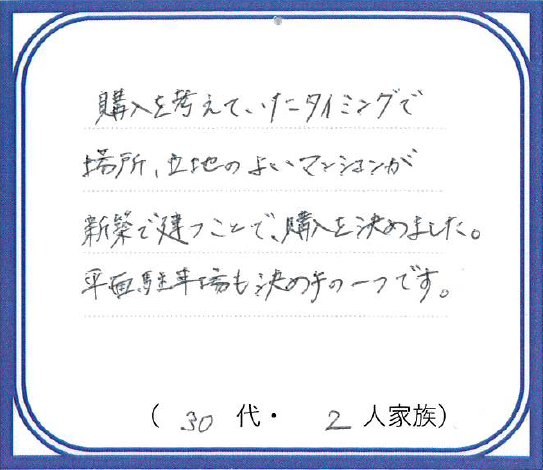 購入を考えていたタイミングで
場所、立地のよいマンションが
新築で建つことで、購入を決めました。
平面駐車場も決め手の一つです。
(30代・2人家族)